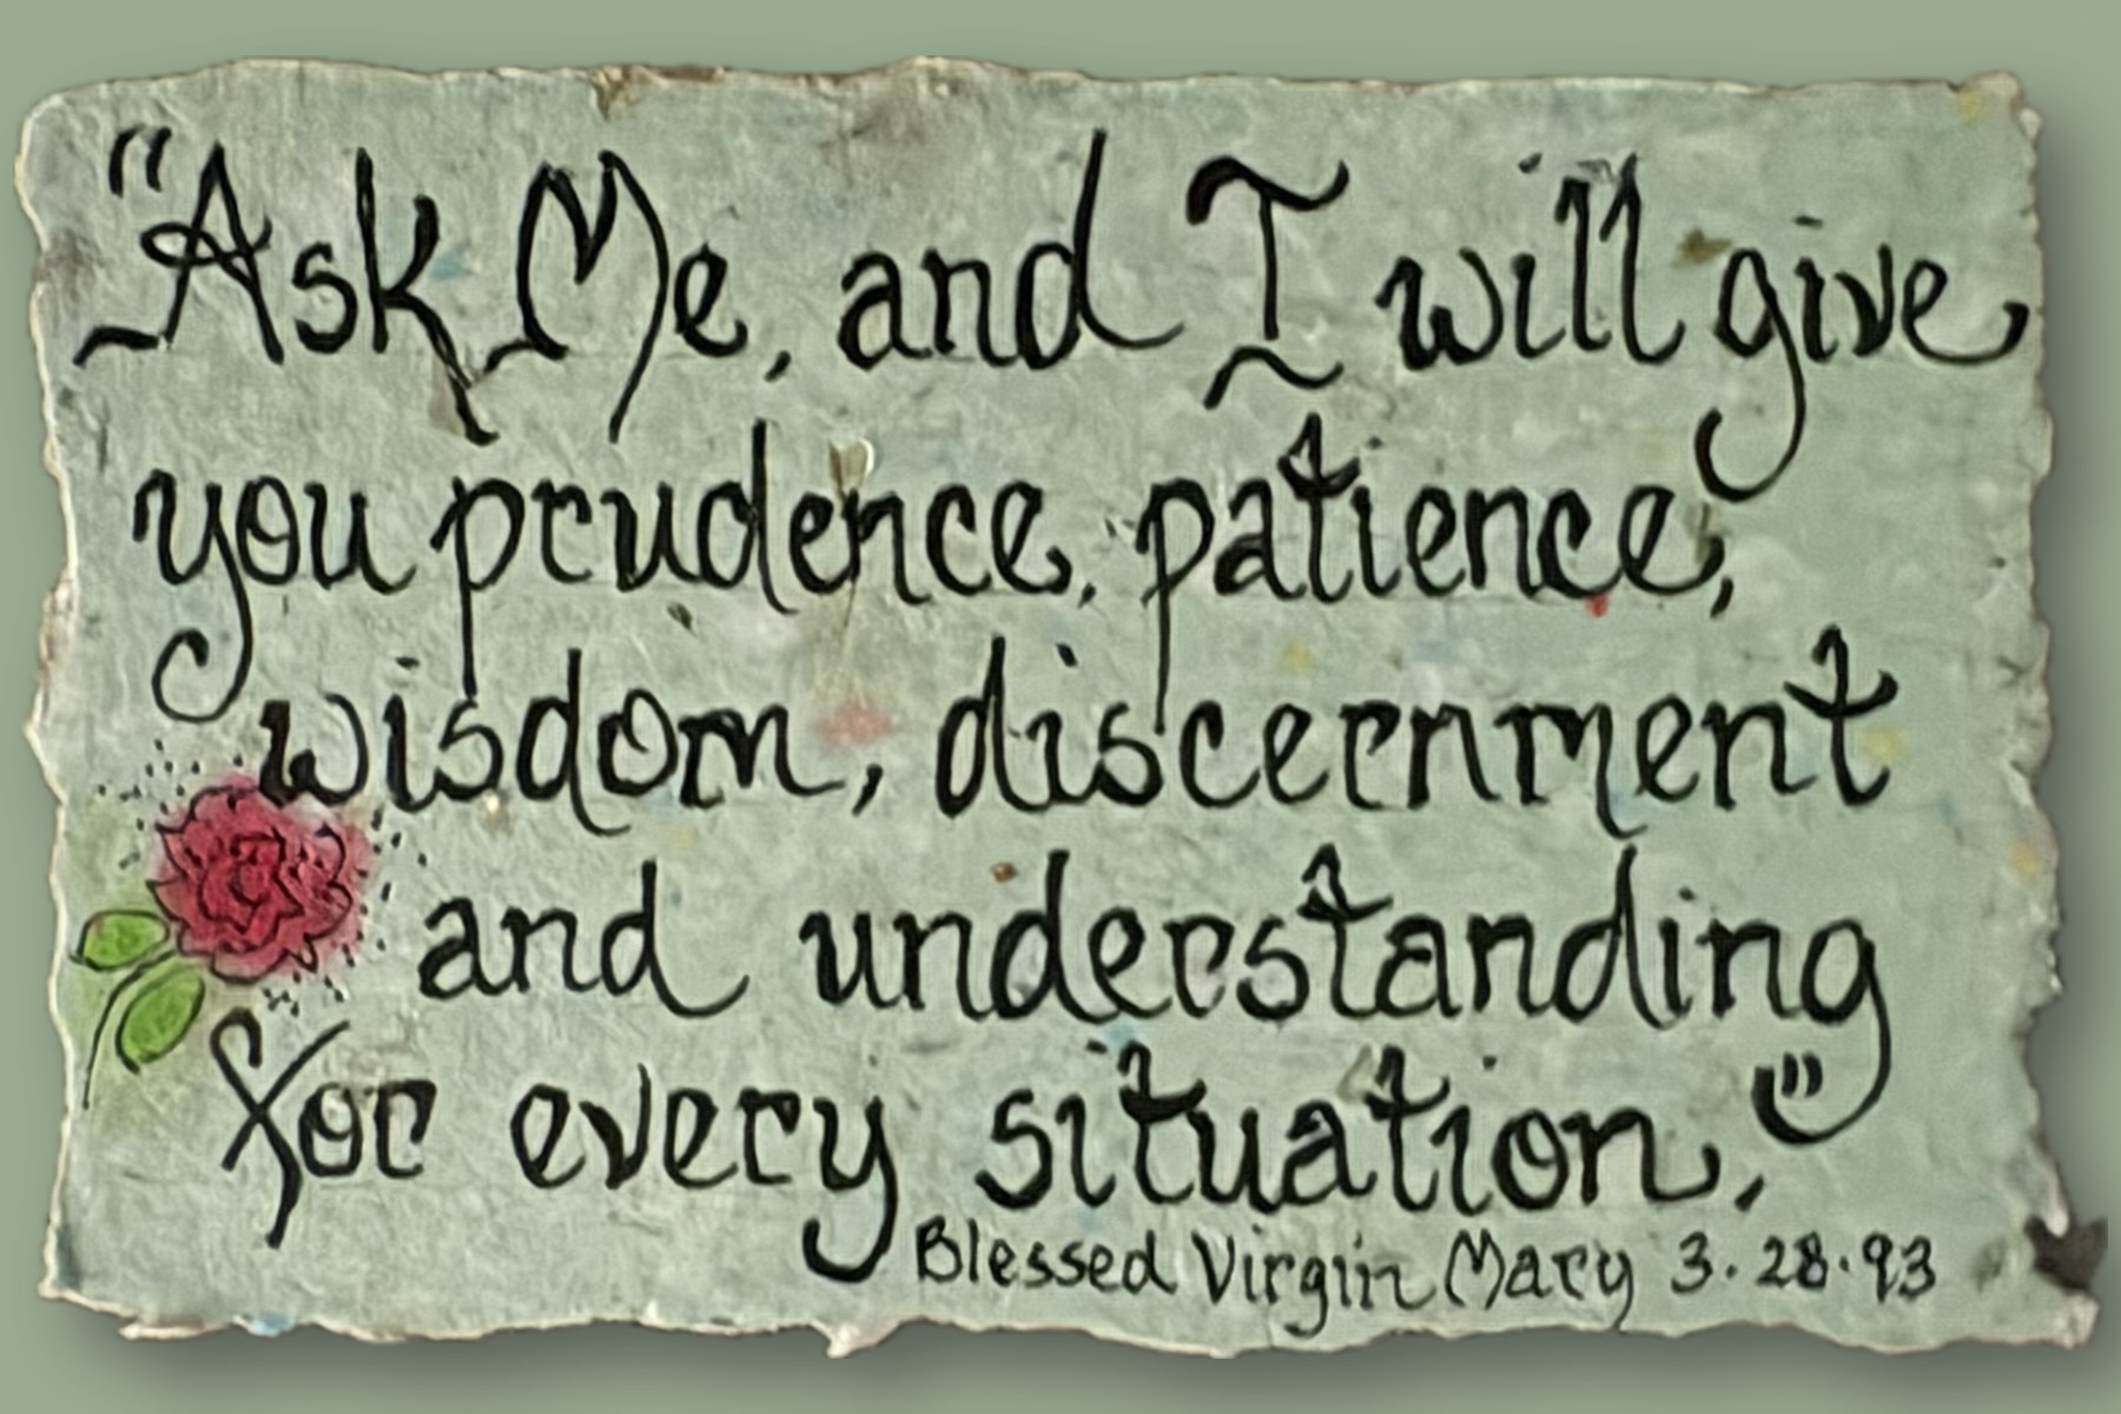 "Ask Me, and I will give
you prudence, patience,
wisdom, discernment
and understanding
for every situation."
Blessed Virgin Mary 3.28.93